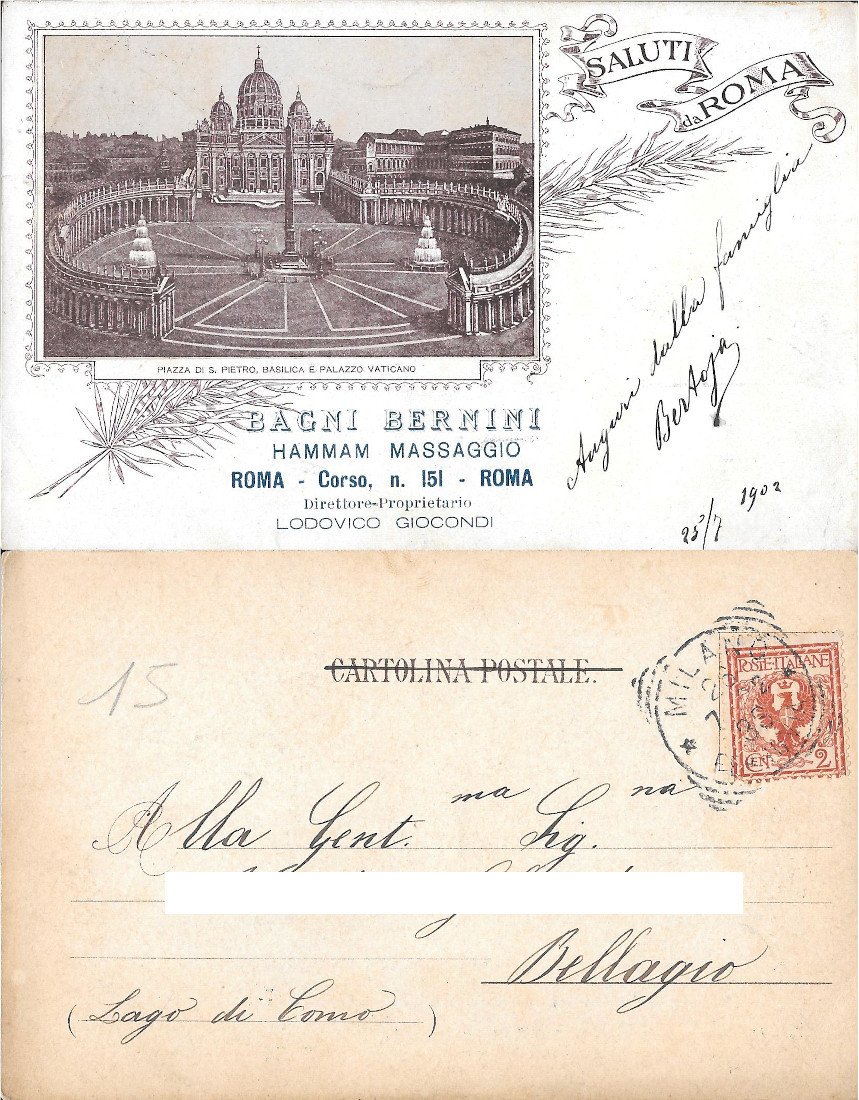 SALUTI
da ROMA
PIAZZA DI S. PIETRO, BASILICA E PALAZZO VATICANO
Auguri dalla famiglia
Bertoja
25/7 1902
BAGNI BERNINI
HAMMAM MASSAGGIO
ROMA - Corso, n. 151 - ROMA
Direttore-Proprietario
LODOVICO GIOCONDI
15
CARTOLINA POSTALE.
MILANO
POSTE·ITALIANE
CEN 2
Alla Gent.ma Sig.na
Bellagio
(Lago di Como)